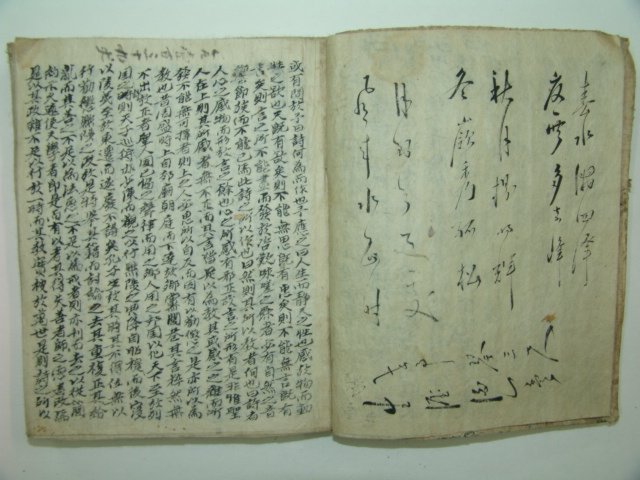 春水滿四澤
夏雲多奇峯
秋月揚明輝
冬嶺秀孤松
風來水面時
或有問於予曰詩何爲而作也予應之曰人生而靜天之性也感於物而動
性之欲也夫旣有欲矣則不能無思旣有思矣則不能無言旣有
言矣則言之所不能盡而發於咨嗟咏嘆之餘者必有自然之音
響節族而不能已焉此詩之所以作也曰然則其所以敎者何也曰詩者
人心之感物而形於言之餘也心之所感有邪正故言之所形有是非惟聖
人在上則其所感者無不正而其言皆足以爲敎其或感之之雜而所
發不能無可擇者則上之人必思所以自反而因有以勸懲之是亦所以爲
敎也昔周盛時上自郊廟朝廷而下達於鄕黨閭巷其言粹然無
不出於正者聖人固已協之聲律而用之鄕人用之邦國以化天下至於列
國之詩則天子巡狩亦必陳而觀之以行黜陟之典降自昭穆而後寖
以陵夷至於東遷而遂廢不講矣孔子生於其時旣不得位無以
行勸懲黜陟之政於是特擧其籍而討論之去其重複正其紛
亂而其善之不足以爲法惡之不足以爲戒者則亦刊而去之以從簡
約示久遠使夫學者卽是而有以考其得失善者師之而惡者改焉
是以其政雖不足以行於一時而其敎實被於萬世是則詩之所以